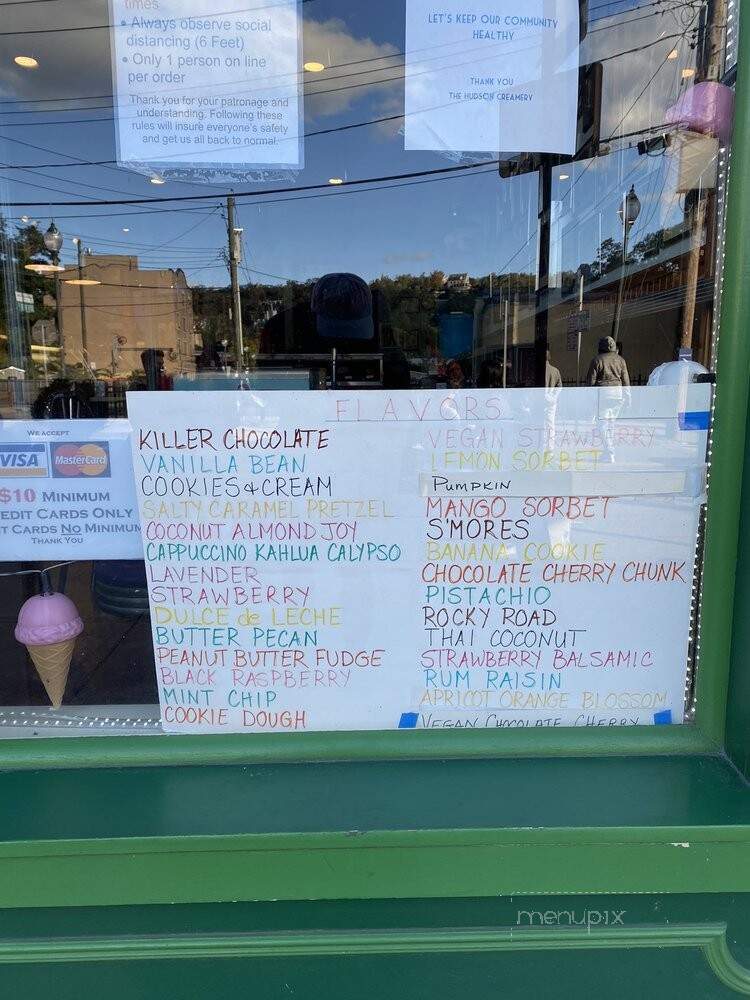 times
• Always observe social
distancing (6 Feet)
• Only 1 person on line
per order
Thank you for your patronage and
understanding. Following these
rules will insure everyone's safety
and get us all back to normal.
LET'S KEEP OUR COMMUNITY
HEALTHY
THANK YOU
THE HUDSON CREAMERY
WE ACCEPT
VISA MasterCard
$10 MINIMUM
EDIT CARDS ONLY
T CARDS NO MINIMUM
THANK YOU
FLAVORS
KILLER CHOCOLATE
VANILLA BEAN
COOKIES & CREAM
SALTY CARAMEL PRETZEL
COCONUT ALMOND JOY
CAPPUCCINO KAHLUA CALYPSO
LAVENDER
STRAWBERRY
DULCE de LECHE
BUTTER PECAN
PEANUT BUTTER FUDGE
BLACK RASPBERRY
MINT CHIP
COOKIE DOUGH
VEGAN STRAWBERRY
LEMON SORBET
PUMPKIN
MANGO SORBET
S'MORES
BANANA COOKIE
CHOCOLATE CHERRY CHUNK
PISTACHIO
ROCKY ROAD
THAI COCONUT
STRAWBERRY BALSAMIC
RUM RAISIN
APRICOT ORANGE BLOSSOM
VEGAN CHOCOLATE CHERRY
menupix